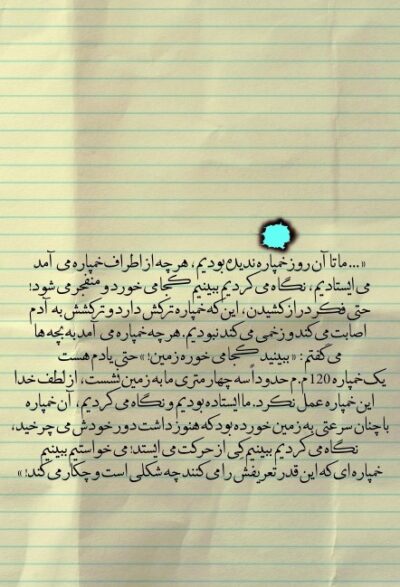 «... ما تا آن روز خمپاره ندیده بودیم، هر چه از اطراف خمپاره می آمد
می ایستادیم، نگاه می کردیم ببینیم کجا می خورد و منفجر می شود!
حتی فکر دراز کشیدن، این که خمپاره ترکش دارد و ترکشش به آدم
اصابت می کند و زخمی می کند نبودیم. هر چه خمپاره می آمد به بچه ها
می گفتم: «ببینید کجا می خوره زمین!» حتی یادم هست
یک خمپاره 120م.م حدوداً سه چهار متری ما به زمین نشست، از لطف خدا
این خمپاره عمل نکرد. ما ایستاده بودیم و نگاه می کردیم، آن خمپاره
با چنان سرعتی به زمین خورده بود که هنوز داشت دور خودش می چرخید،
نگاه می کردیم ببینیم کی از حرکت می ایستد؛ می خواستیم ببینیم
خمپاره ای که این قدر تعریفش را می کنند چه شکلی است و چکار می کند!»